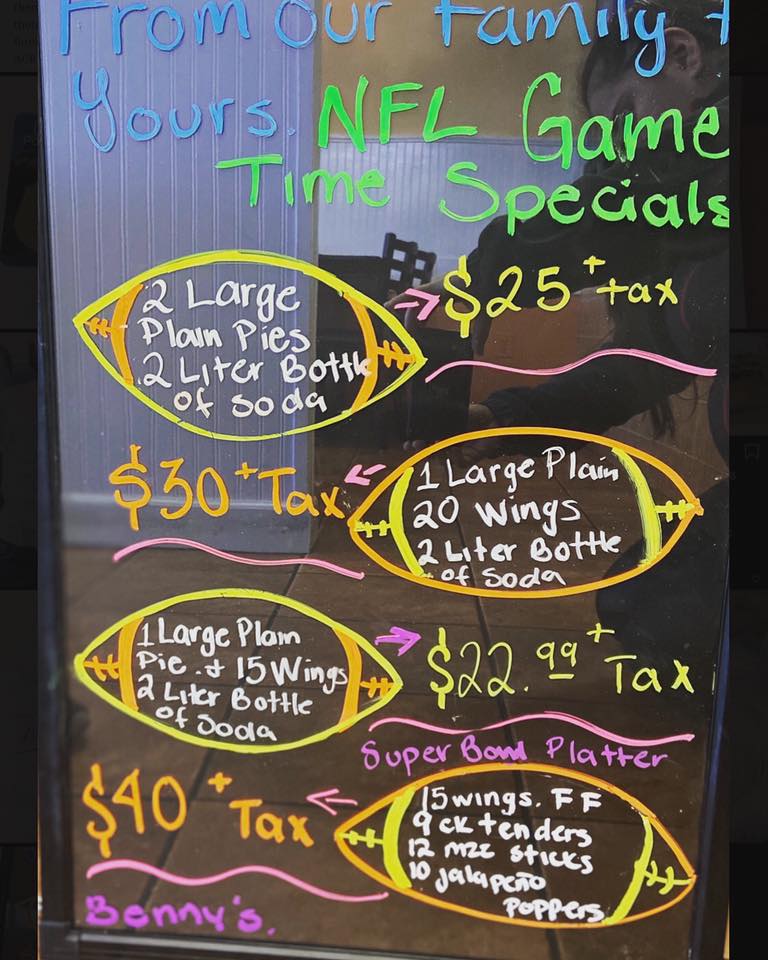 From our family t
Yours. NFL Game
Time Specials
2 Large
Plain Pies
2 Liter Bottle
of Soda
$25 + tax
$30 + Tax
1 Large Plain
20 Wings
2 Liter Bottle
of Soda
1 Large Plain
Pie + 15 Wings
2 Liter Bottle
of Soda
$22.99 + Tax
Super Bowl Platter
$40 + Tax
15 wings. FF
9 CK tenders
12 mzz sticks
10 jalapeño
Poppers
Benny's.